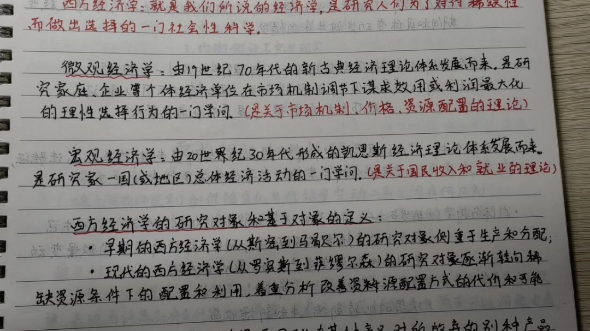 西方经济学：就是我们所说的经济学，是研究人们为了对待稀缺性
而做出选择的一门社会性科学。
微观经济学：由19世纪70年代的新古典经济理论体系发展而来。是研
究家庭、企业等个体经济单位在市场机制调节下谋求效用或利润最大化
的理性选择行为的一门学问。(是关于市场机制、价格、资源配置的理论)
宏观经济学：由20世界纪30年代形成的凯恩斯经济理论体系发展而来。
是研究家一国(或地区)总体经济活动的一门学问。(是关于国民收入和就业的理论)
西方经济学的研究对象和基于对象的定义：
·早期的西方经济学(从斯密到马歇尔)的研究对象侧重于生产和分配；
·现代的西方经济学(从罗宾斯到萨缪尔森)的研究对象逐渐转向稀
缺资源条件下的配置和利用，着重分析改善资源配置方式的代价和可能